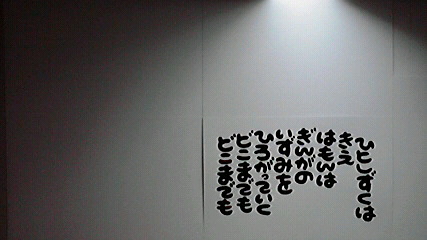 ひとしずくは
きえ
はもんは
ぎんがの
いずみを
ひろがっていく
どこまでも
どこまでも